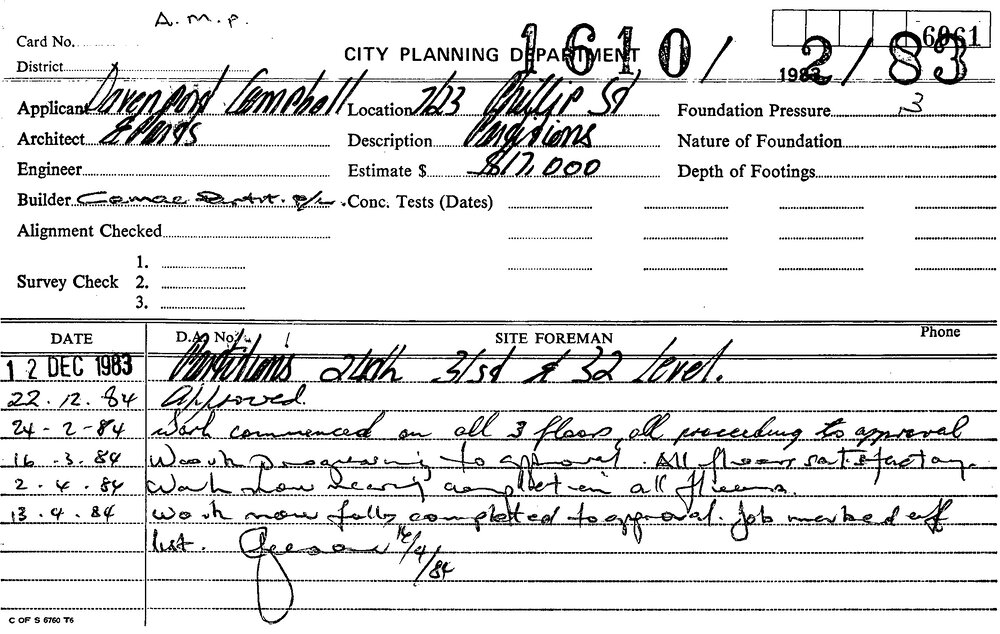 A.M.P.
6061
Card No.
CITY PLANNING DEPARTMENT 1610/2/83
District
1983
Applicant Davenport Campbell Location 7/23 Phillip St Foundation Pressure 13
Architect & Ptnrs Description Partitions Nature of Foundation
Engineer Estimate $ $17,000 Depth of Footings
Builder P/L. Conc. Tests (Dates)
Alignment Checked
1.
Survey Check 2.
3.
DATE D.A. No. SITE FOREMAN Phone
12 DEC 1983 Partitions 24th 31st & 32 Level.
22.12.84 Approved.
24-2-84 Work commenced on all 3 floors, all proceeding to approval
16.3.84 Work progressing to approval. All floors satisfactory.
2.4.84 Work now nearing completion all floors.
13.4.84 Work now fully completed to approval. Job marked off
list. 16/4/84
C OF S 6760 T6